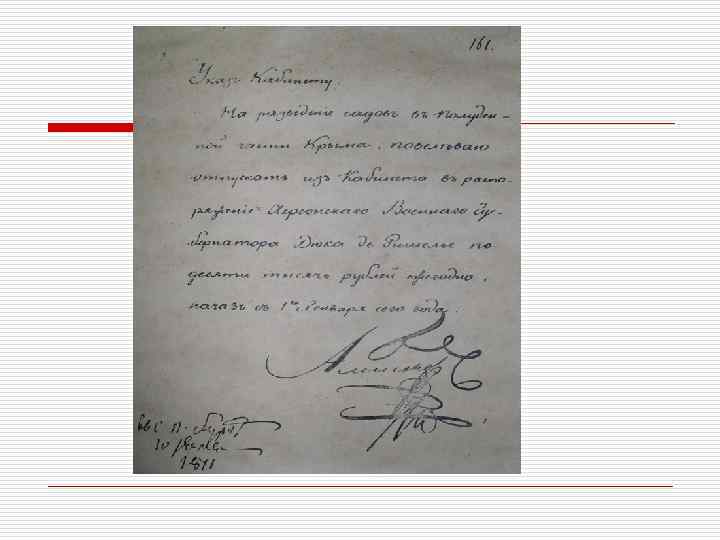 161.
Указъ Кабинету.
На разведенiе садовъ въ полуден-
ной части Крыма, повелѣваю
отпускать изъ Кабинета въ распо-
ряженiе Херсонскаго Военнаго Гу-
бернатора Дюка де Ришелье по
десяти тысячь рублей ежегодно,
начавъ съ 1го Генваря сего года.
Александръ
1811